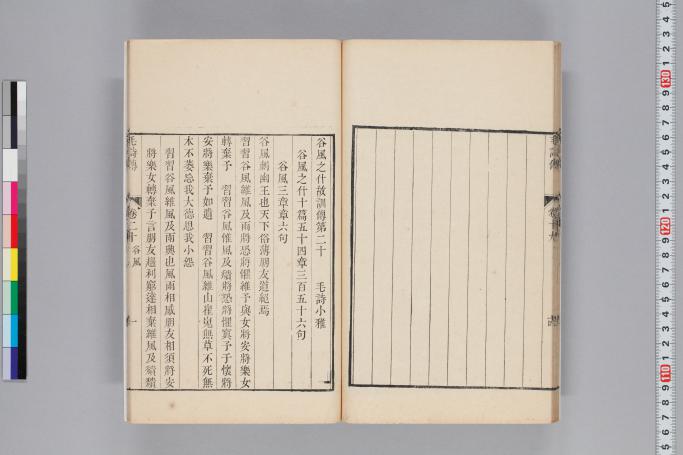 谷風之什故訓傳第二十　毛詩小雅
谷風之什十篇五十四章三百五十六句
谷風三章章六句
谷風刺幽王也天下俗薄朋友道絕焉
習習谷風維風及雨將恐將懼維予與女將安將樂女
轉棄予　習習谷風維風及頹將恐將懼寘予于懷將
安將樂棄予如遺　習習谷風維山崔嵬無草不死無
木不萎忘我大德思我小怨
習習谷風維風及雨興也風雨相感朋友相須將安
將樂女轉棄予言朋友趨利窮達相棄維風及頹頹
毛詩傳
卷二十
谷風
一
毛詩傳
卷十九